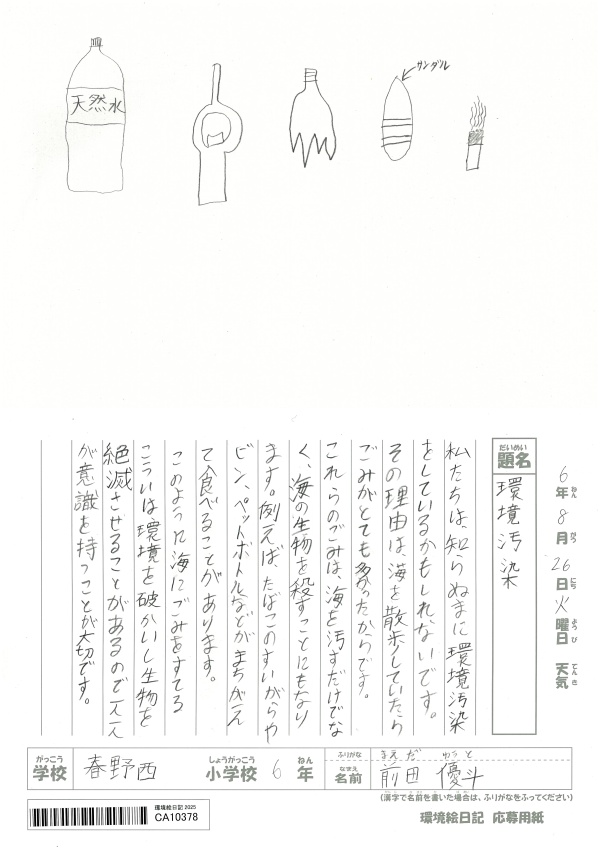 天然水
サンダル
6年8月26日火曜日 天気
ねん がつ にち ようび てんき
だいめい
題名
環境汚染
私たちは、知らぬまに環境汚染
をしているかもしれないです。
その理由は、海を散歩していたら
ごみがとても多かったからです。
これらのごみは、海を汚すだけでな
く、海の生物を殺すことにもなり
ます。例えば、たばこのすいがらや
ビン、ペットボトルなどがまちがえ
て食べることがあります。
このように海にごみをすてる
こういは環境を破かいし生物を
絶滅させることがあるので一人一人
が意識を持つことが大切です。
がっこう
学校
春野西
しょうがっこう
小学校
6
ねん
年
ふりがな
まえだ ゆうと
なまえ
名前
前田 優斗
(漢字で名前を書いた場合は、ふりがなをふってください)
環境絵日記 2025
CA10378
環境絵日記 応募用紙